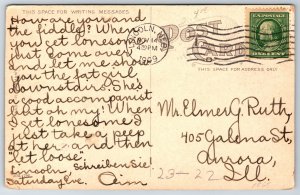 THIS SPACE FOR WRITING MESSAGES
How are you and
the fiddle? When
you get lonesome
just come over
and let me show
you the fat girl
downstairs. She's
a good accompanist
but oh my! When
I get lonesome I
just take a peep
at her and then
"let loose".
Lincoln, Schreiben Sie!
Saturday eve.
LINCOLN, NEBR.
PM
1909
POST CARD
THIS SPACE FOR ADDRESS ONLY
Mr. Elmer G. Ruth,
405 Galena St,
Aurora,
Ill.
23-22